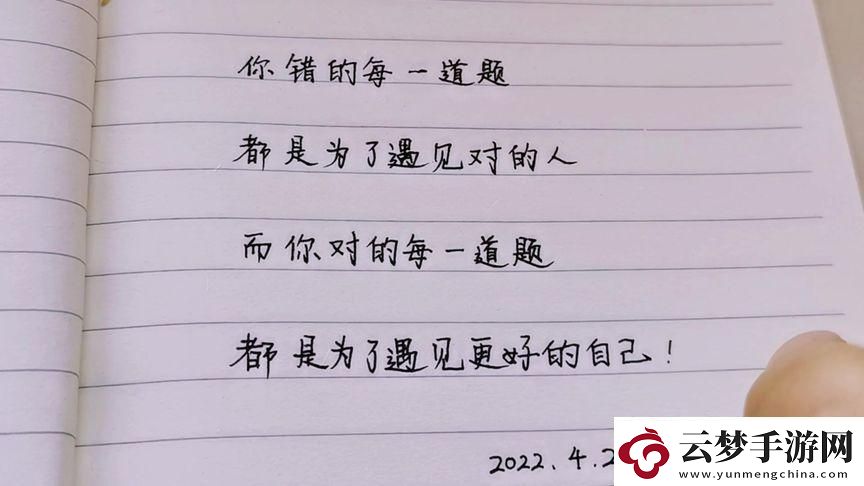 你错的每一道题
都是为了遇见对的人
而你对的每一道题
都是为了遇见更好的自己！
2022.4.2
云梦手游网
www.yunmengchina.com